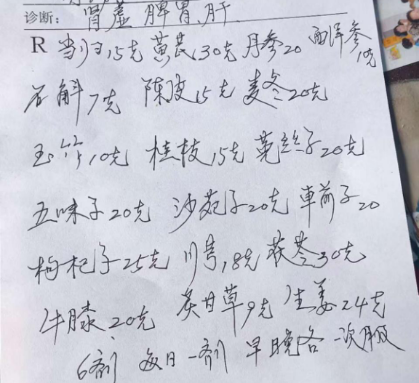 诊断: 肾虚 脾胃.肝
R 当归15克 黄芪30克 丹参20 西洋参10克
石斛7克 陈皮15克 麦冬20克
玉竹10克 桂枝15克 菟丝子20克
五味子20克 沙苑子20克 車前子20
枸杞子25克 川芎18克 茯苓30克
牛膝20克 炙甘草9克 生姜24克
6剂 每日一剂 早晚各一次服